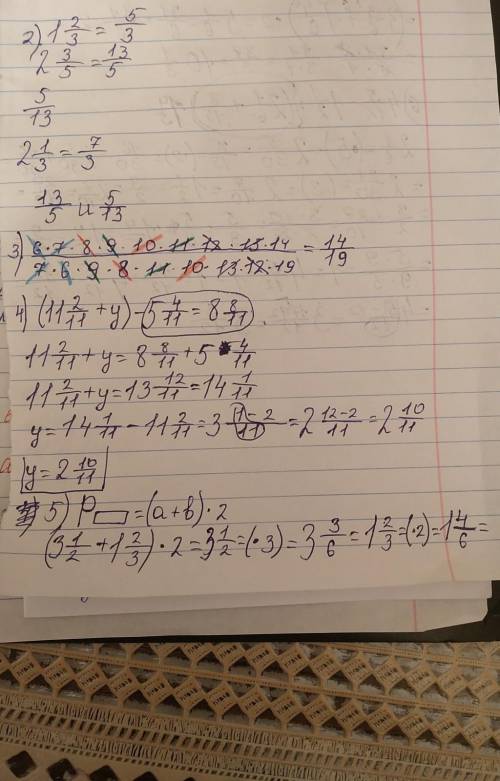 2) 1 2/3 = 5/3
2 3/5 = 13/5
5/13
2 1/3 = 7/3
13/5 и 5/13
3) 6·7·8·9·10·11·12·13·14 / 7·6·9·8·11·10·13·12·19 = 14/19
4) (11 2/11 + y) - 5 4/11 = 8 8/11
11 2/11 + y = 8 8/11 + 5 4/11
11 2/11 + y = 13 12/11 = 14 1/11
y = 14 1/11 - 11 2/11 = 3 1-2/11 = 2 12-2/11 = 2 10/11
y = 2 10/11
5) P▭ = (a+b)·2
(3 1/2 + 1 2/3)·2 = 3 1/2 = (·3) = 3 3/6 = 1 2/3 = (·2) = 1 4/6 =